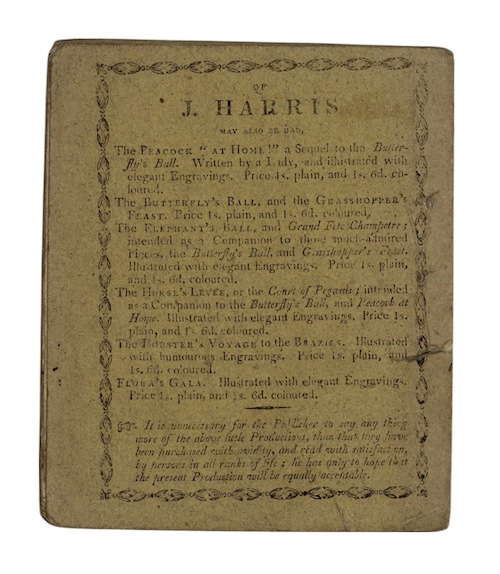 OF
J. HARRIS
MAY ALSO BE HAD,
The PEACOCK "AT HOME!" a Sequel to the Butter-
fly's Ball. Written by a Lady, and illustrated with
elegant Engravings. Price 1s. plain, and 1s. 6d. co-
loured.
The BUTTERFLY'S BALL, and the GRASSHOPPER'S
FEAST. Price 1s. plain, and 1s. 6d. coloured,
The ELEPHANT'S BALL, and Grand Fête Champetre;
intended as a Companion to those much-admired
Pieces, the Butterfly's Ball, and Grasshopper's Feast.
Illustrated with elegant Engravings. Price 1s. plain,
and 1s. 6d. coloured.
The HORSE'S LEVÉE, or the Court of Pegasus; intended
as a Companion to the Butterfly's Ball, and Peacock at
Home. Illustrated with elegant Engravings. Price 1s.
plain, and 1s. 6d. coloured.
The LOBSTER'S VOYAGE to the BRAZILS. Illustrated
with humourous Engravings. Price 1s. plain, and
1s. 6d. coloured.
FLORA'S GALA. Illustrated with elegant Engravings.
Price 1s. plain, and 1s. 6d. coloured.
☞ It is unnecessary for the Publisher to say any thing
more of the above little Productions, than that they have
been purchased with avidity, and read with satisfaction,
by persons in all ranks of life; he has only to hope that
the present Production will be equally acceptable.